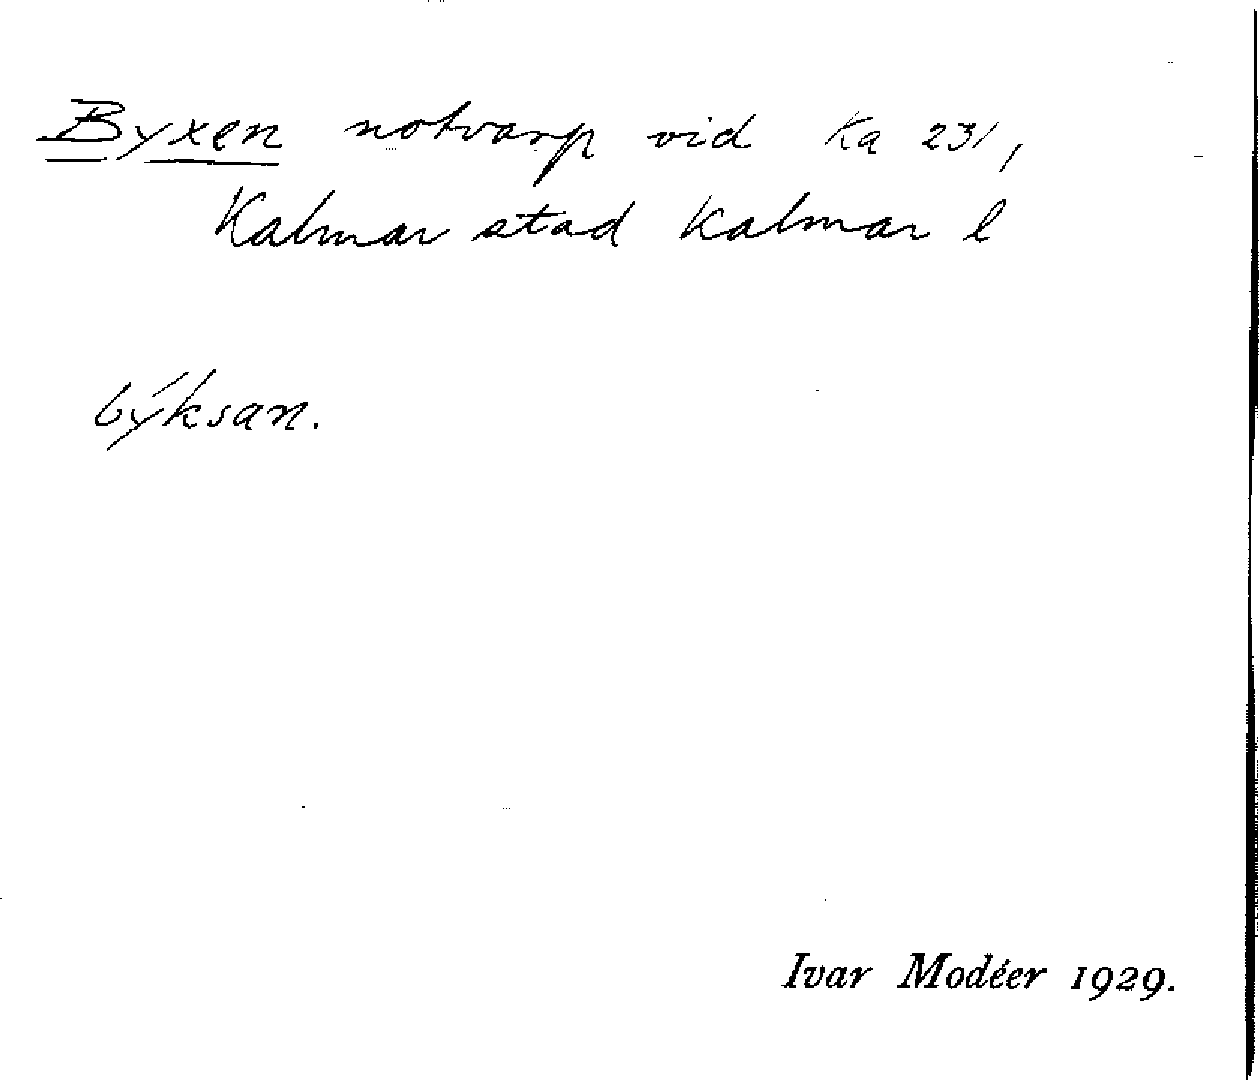 Byxen notvarp vid Ka 231,
Kalmar stad Kalmar l
býksan.
Ivar Modéer 1929.